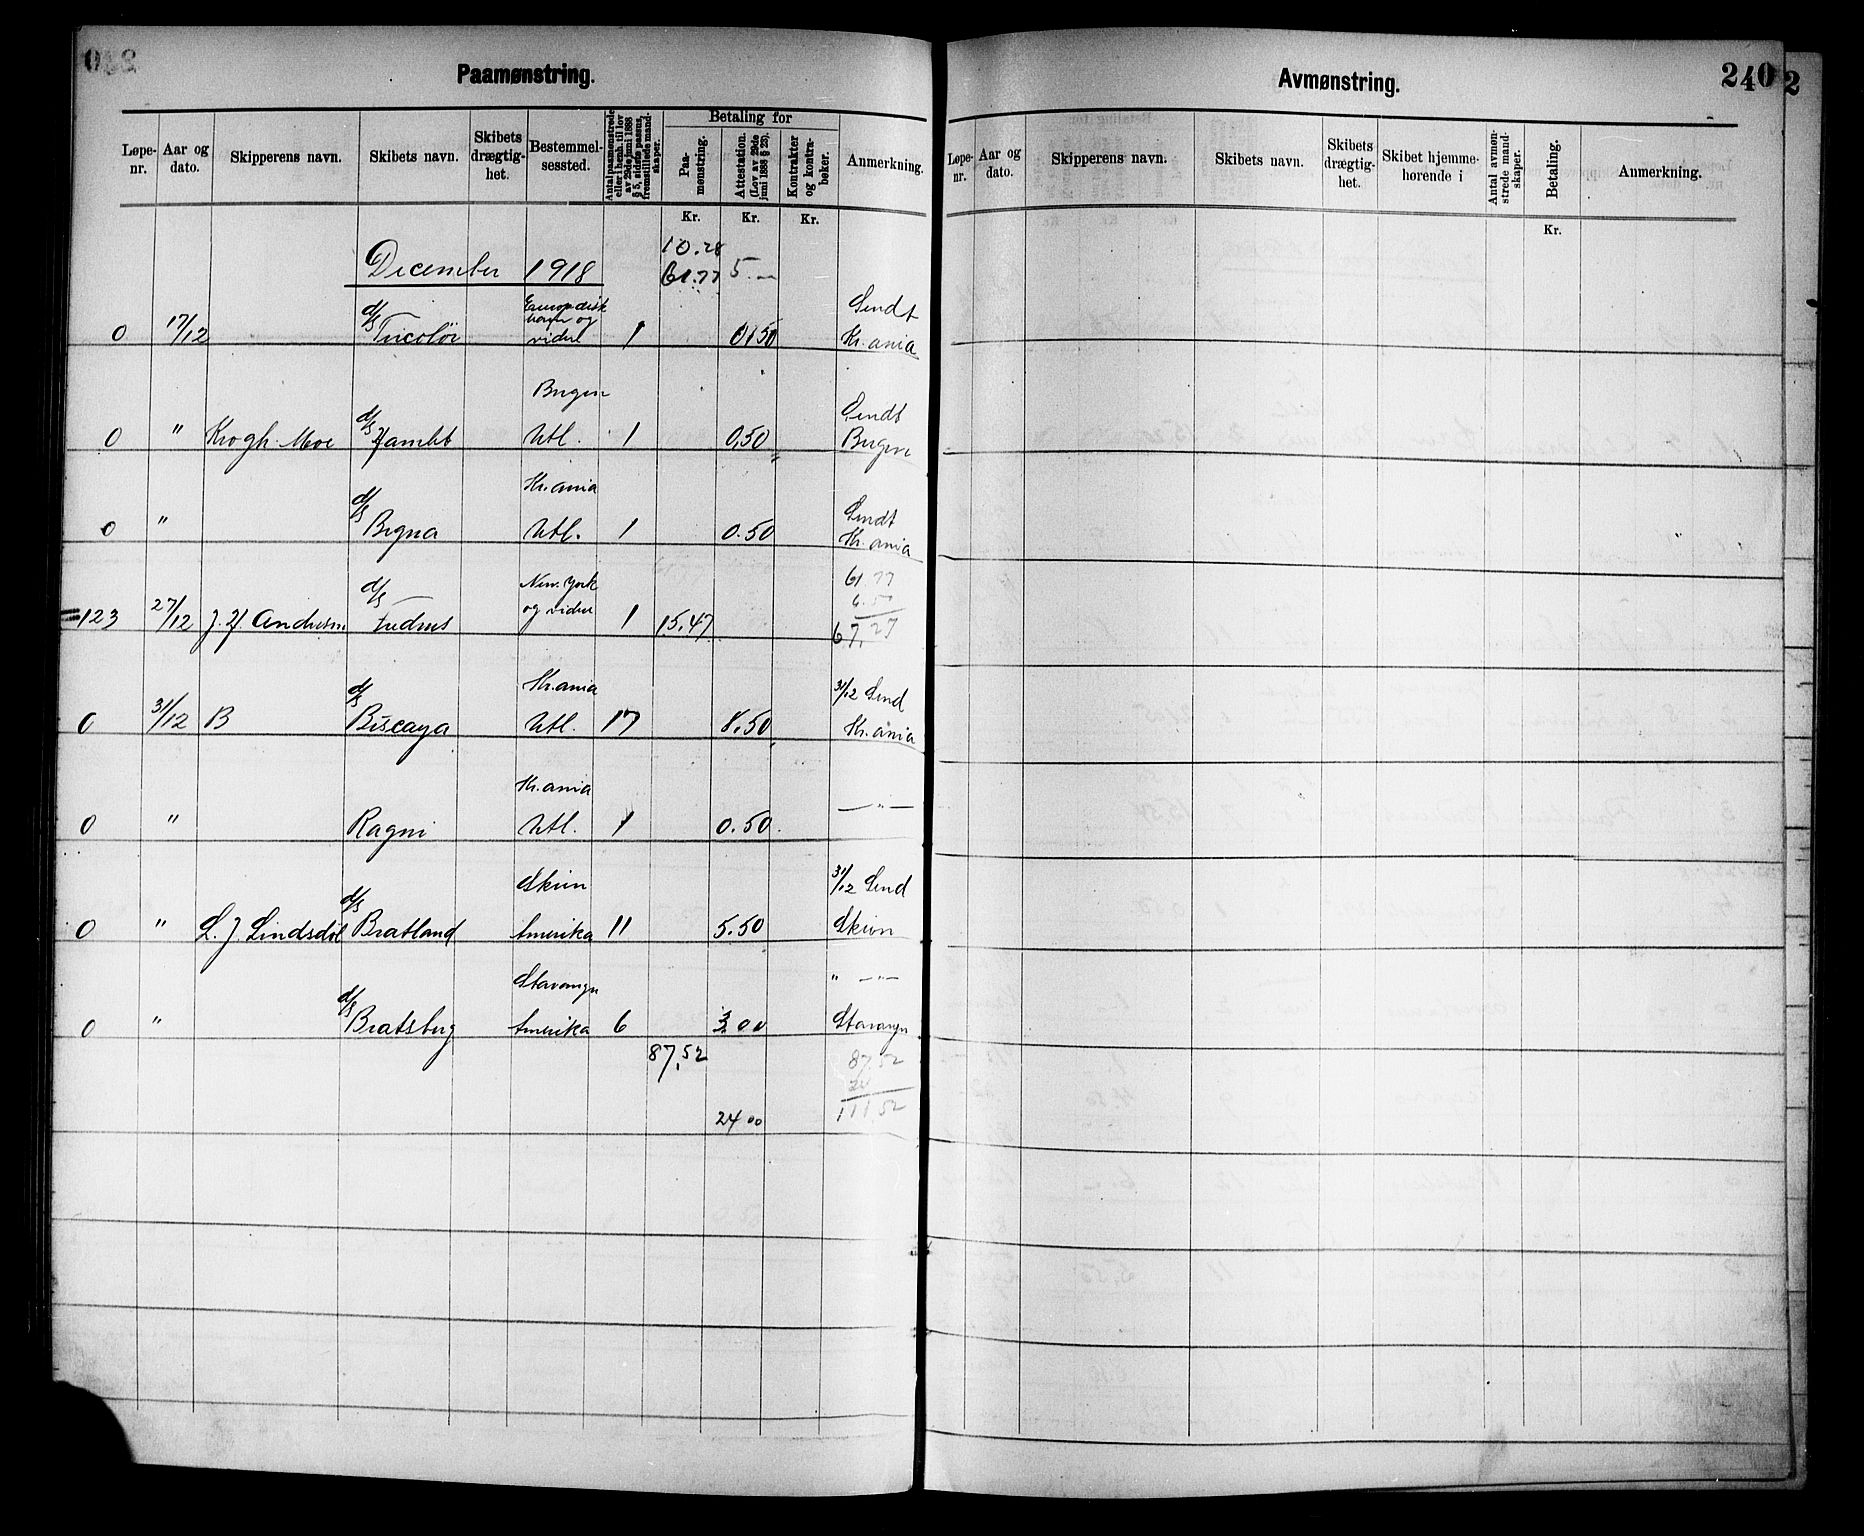 Paamønstring.
Løpe-nr. Aar og dato. Skipperens navn. Skibets navn. Skibets drægtig-het. Bestemmel-sessted. Antal paamønstrede eller i henh. til lov av 29de juni 1888 § 5, sidste passus, fremstillede mand-skaper. Betaling for Paa-mønstring. Attestation. (Lov av 29de juni 1888 § 23). Kontrakter og kontra-bøker. Anmerkning.
Kr. Kr. Kr.
10.28
December 1918 61.77 5.—
d/s Europæisk Sendt
havn og
0 17/12 Tricolör videre 1 0,50 Kr.ania
d/s Bergen Sendt
0 " Krogh. Moe Hamlet Utl. 1 0,50 Bergen
d/s Kr.ania Sendt
0 " Begna Utl. 1 0.50 Kr.ania
d/s New. York 61 77
og videre
123 27/12 J. H. Andresen 1 15.47 67.27
d/s Kr.ania 31/12 Send
0 31/12 B Biscaya Utl. 17 8.50 Kr.ania
Kr.ania —"—
0 " Ragni Utl. 1 0.50
d/s Skien 31/12 Send
0 " L. J. Lindsdöl Bratland Amerika 11 5.50 Skien
d/s Stavanger " —"—
0 " Bratsberg Amerika 6 3.00 Stavanger
87.52 87.52
24
24 00 111.52
240
Avmønstring.
Løpe-nr. Aar og dato. Skipperens navn. Skibets navn. Skibets drægtig-het. Skibet hjemme-hørende i Antal avmøn-strede mand-skaper. Betaling. Anmerkning.
Kr.
2